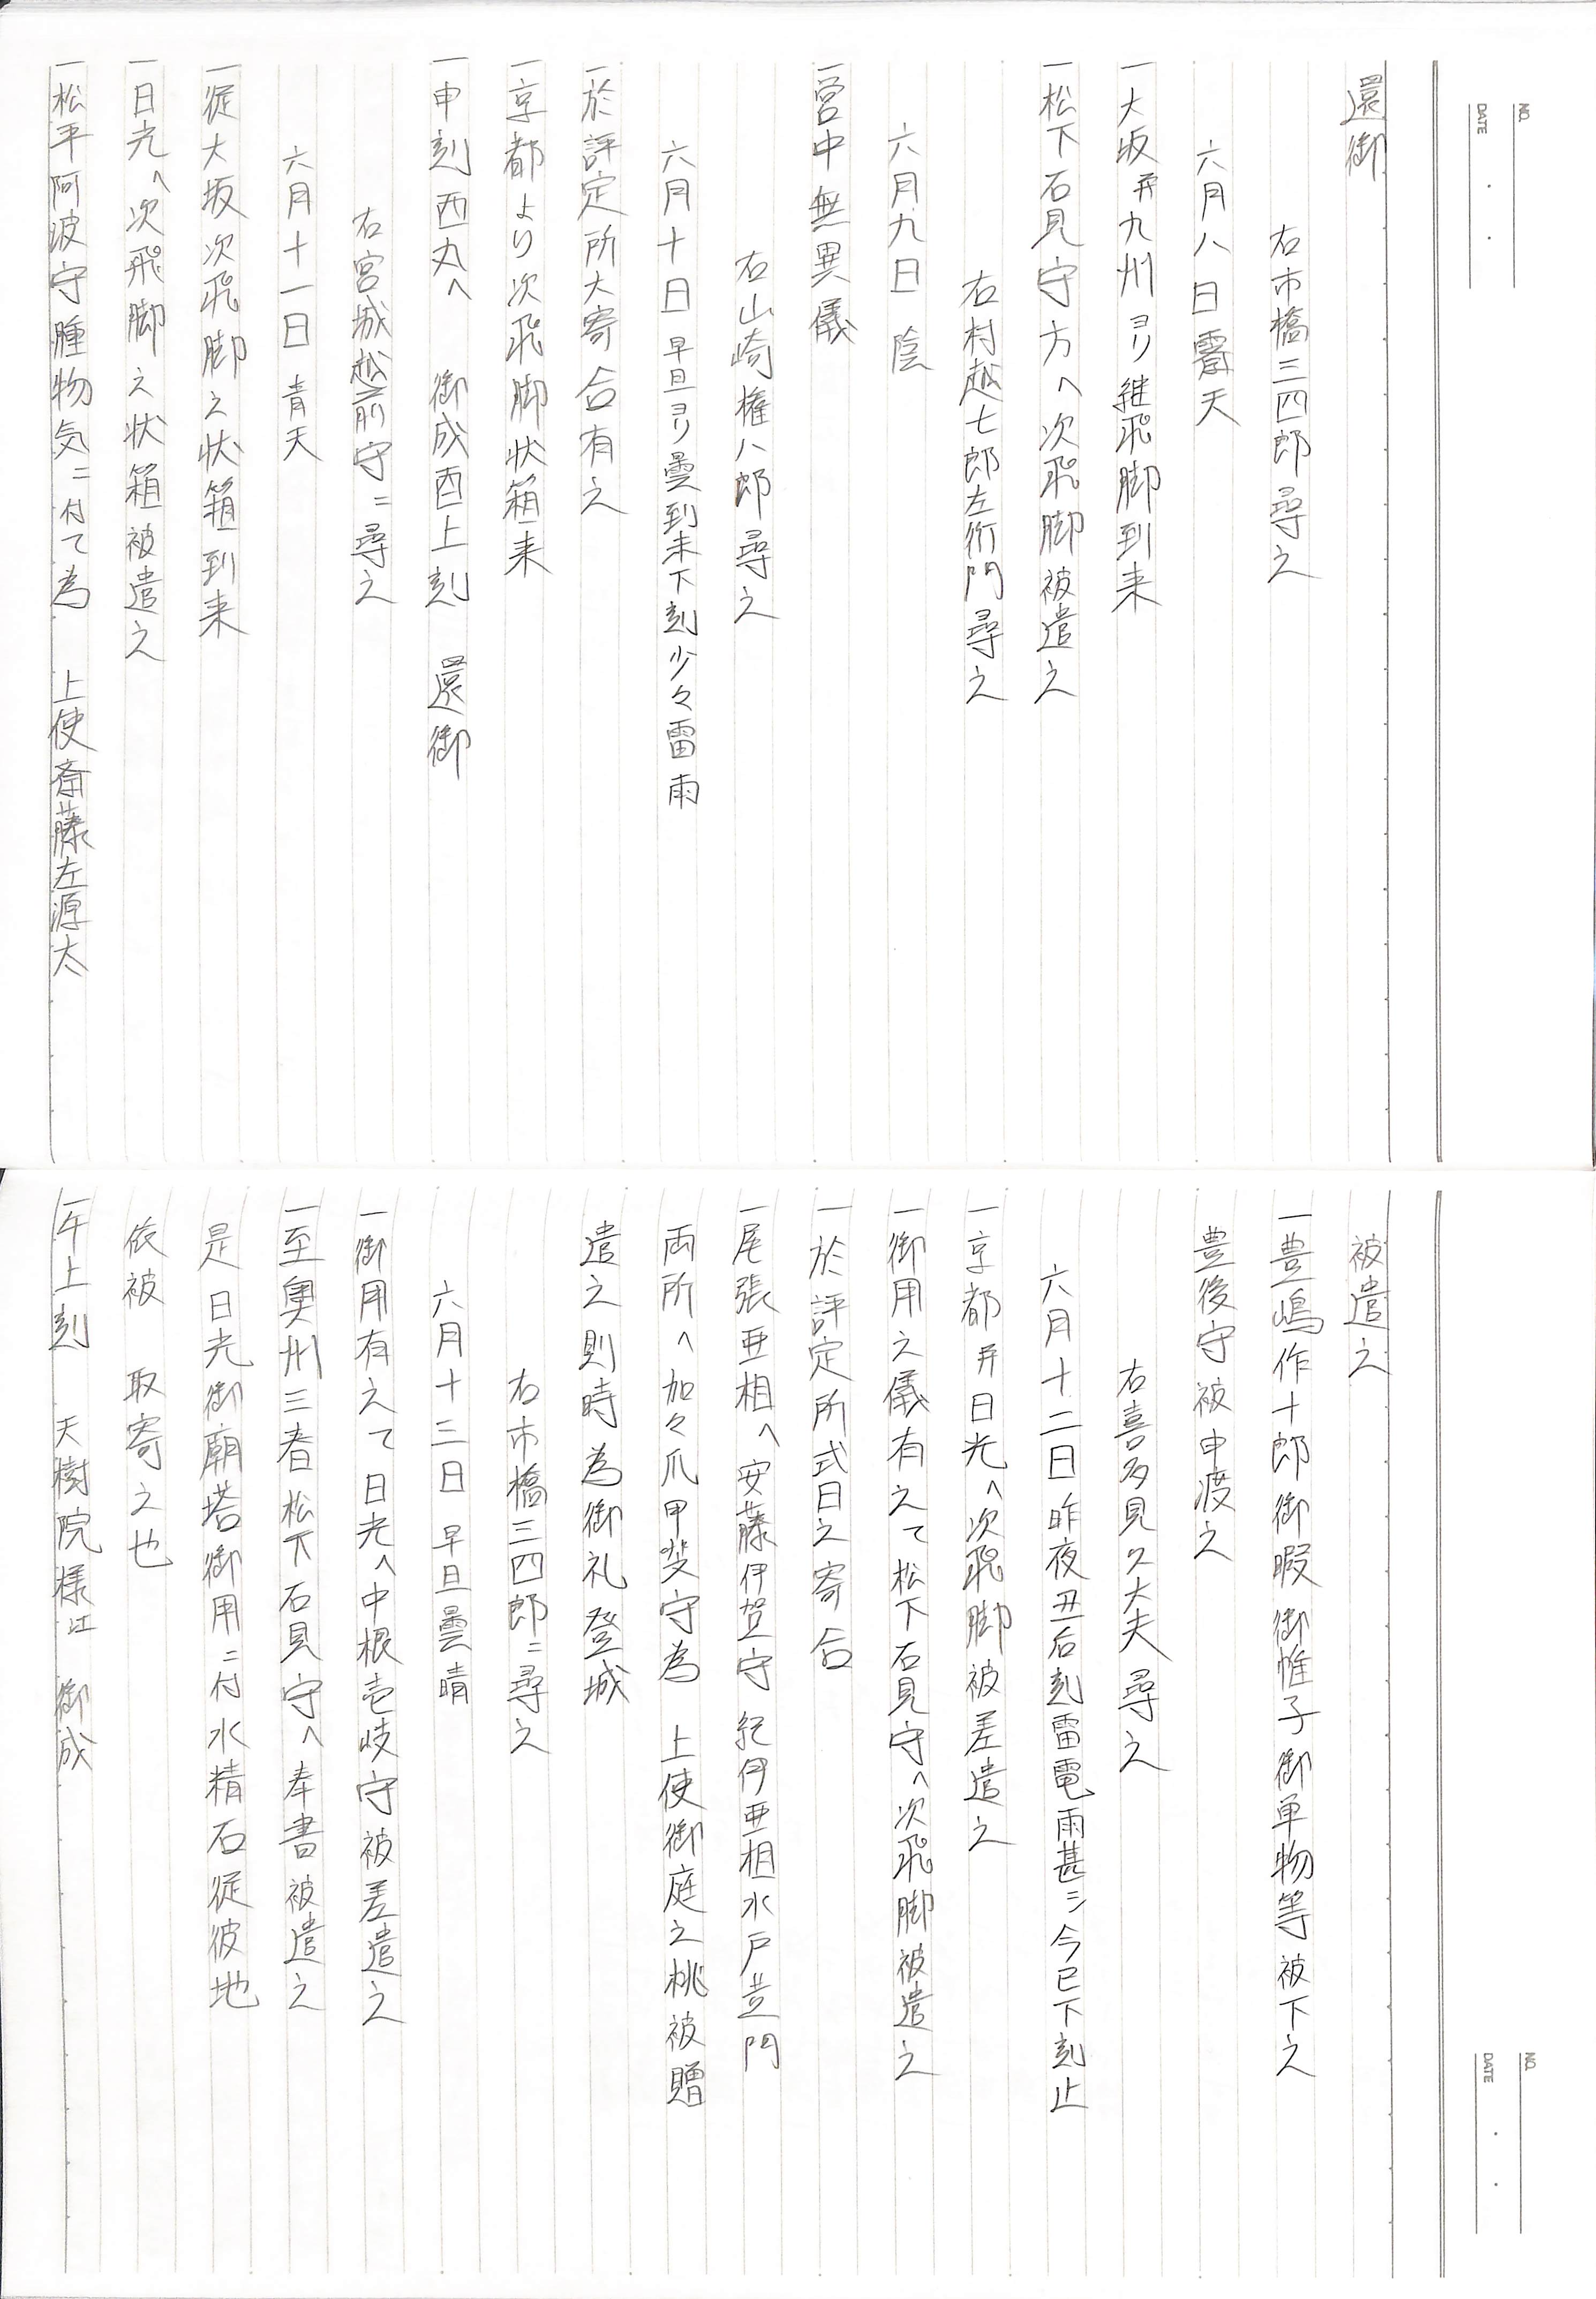 NO.
DATE
還御
右市橋三四郎尋之
六月八日霽天
一大坂并九州ヨリ継飛脚到来
一松下石見守方へ次飛脚被遣之
右村越七郎左衛門尋之
六月九日 陰
一営中無異儀
右山崎権八郎尋之
六月十日 早旦ヨリ曇到未下刻少々雷雨
一於評定所大寄合有之
一京都より次飛脚状箱来
一申刻西丸へ 御成酉上刻 還御
右宮城越前守ニ尋之
六月十一日 青天
一従大坂次飛脚之状箱到来
一日光へ次飛脚之状箱被遣之
一松平阿波守腫物気ニ付て為 上使斎藤左源太
NO.
DATE
被遣之
一豊嶋作十郎御暇御惟子御単物等被下之
豊後守被申渡之
右喜多見久大夫尋之
六月十二日 昨夜丑后刻雷電雨甚シ今巳下刻止
一京都并日光へ次飛脚被差遣之
一御用之儀有之て松下石見守へ次飛脚被遣之
一於評定所式日之寄合
一尾張亜相へ安藤伊賀守紀伊亜相水戸黄門
両所へ加々爪甲斐守為 上使御庭之桃被贈
遣之則時為御礼登城
右市橋三四郎ニ尋之
六月十三日 早旦曇晴
一御用有之て日光へ中根壱岐守被差遣之
一至奥州三春松下石見守へ奉書被遣之
是日光御廟塔御用ニ付水精石従彼地
依被 取寄之也
一午上刻 天樹院様江 御成